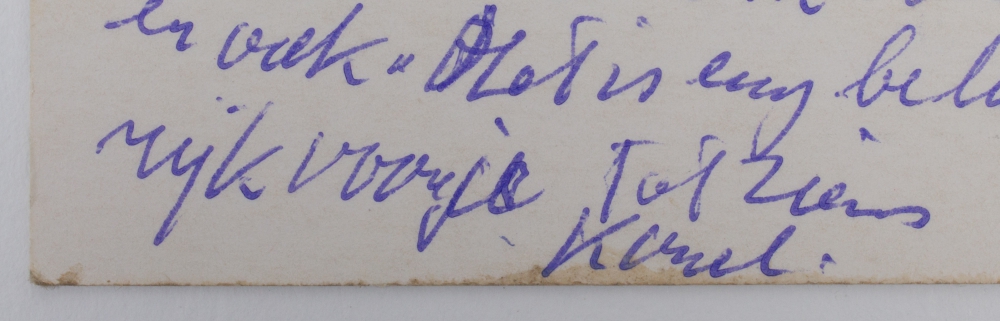 er ook. Dat is erg bela
rijk voor je Tot ziens
Karel.